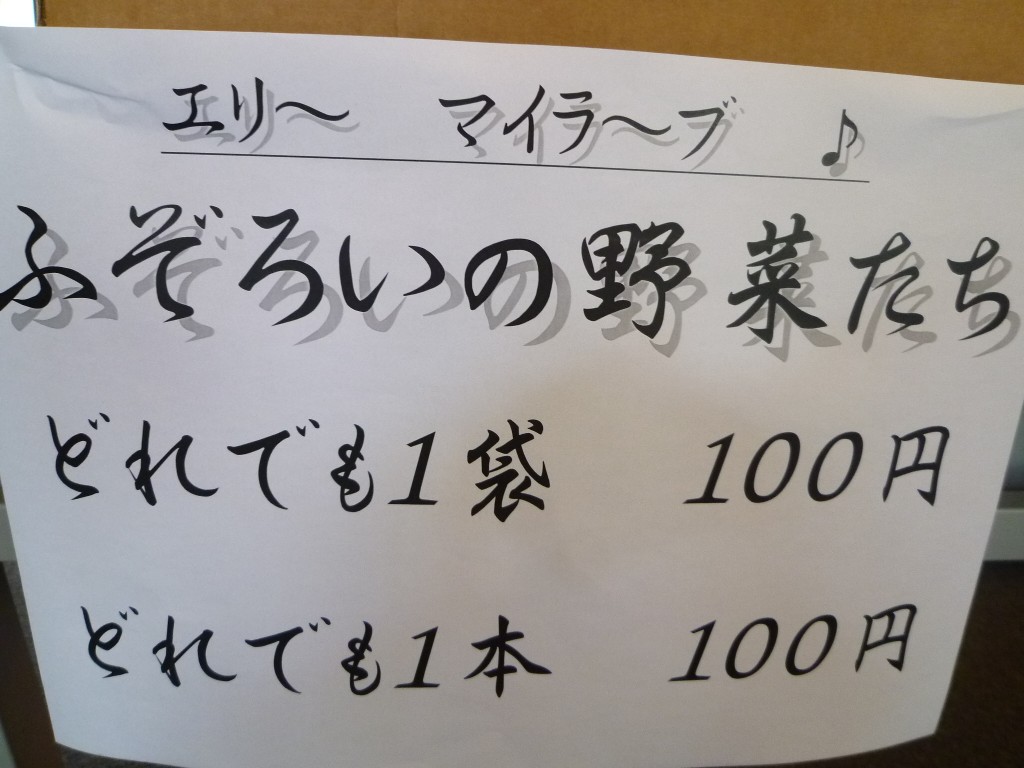 エリ～　マイラ～ブ　♪
ふぞろいの野菜たち
どれでも1袋　100円
どれでも1本　100円